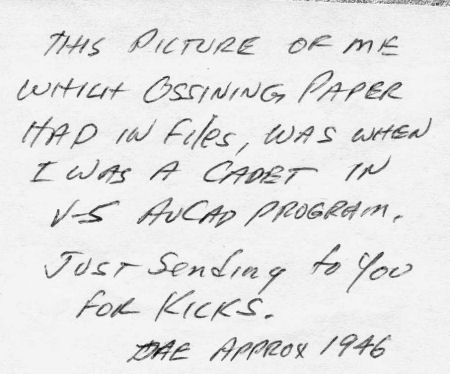 THIS PICTURE OF ME
WHICH OSSINING PAPER
HAD IN Files, WAS WHEN
I WAS A CADET IN
V-5 AVCAD PROGRAM.
JUST Sending to You
FOR KICKS.
DAE APPROX 1946